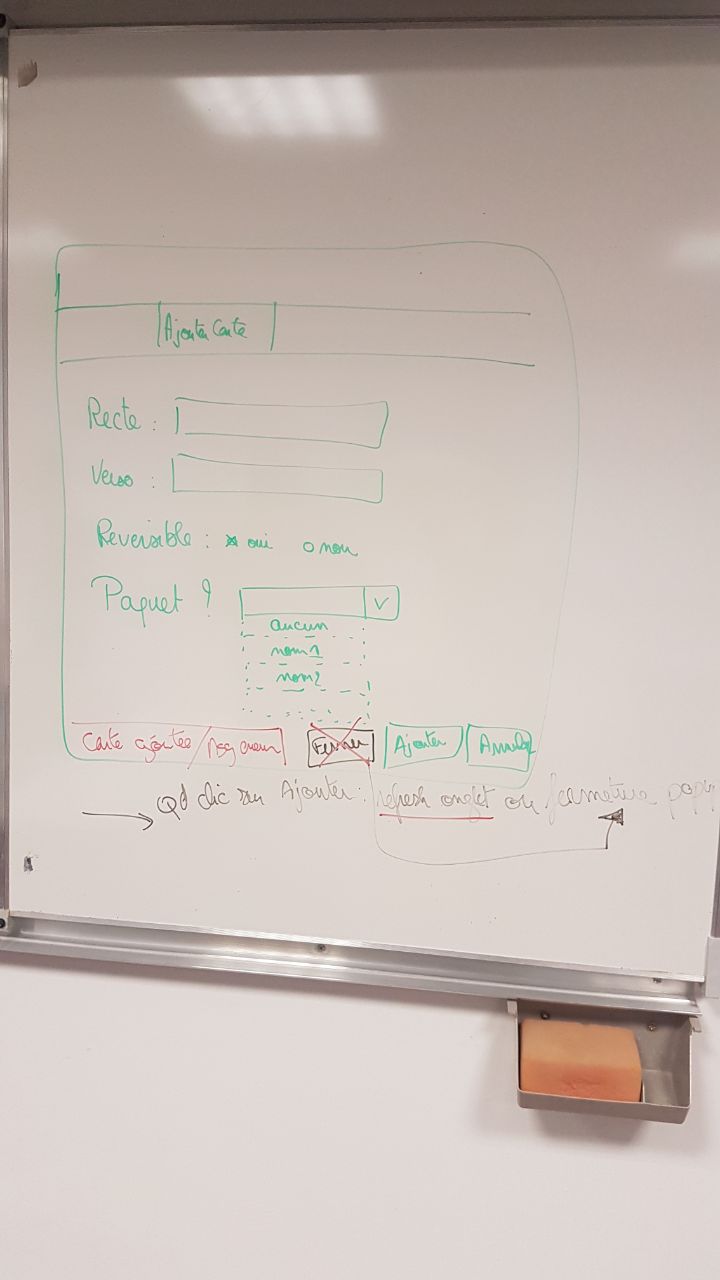 Ajouter Carte
Recto :
Verso :
Reversible : oui non
Paquet ? V
aucun
nom1
nom2
Carte ajoutée / Msg erreur Fermer Ajouter Annuler
Qd clic sur Ajouter : refresh onglet ou fermeture popup